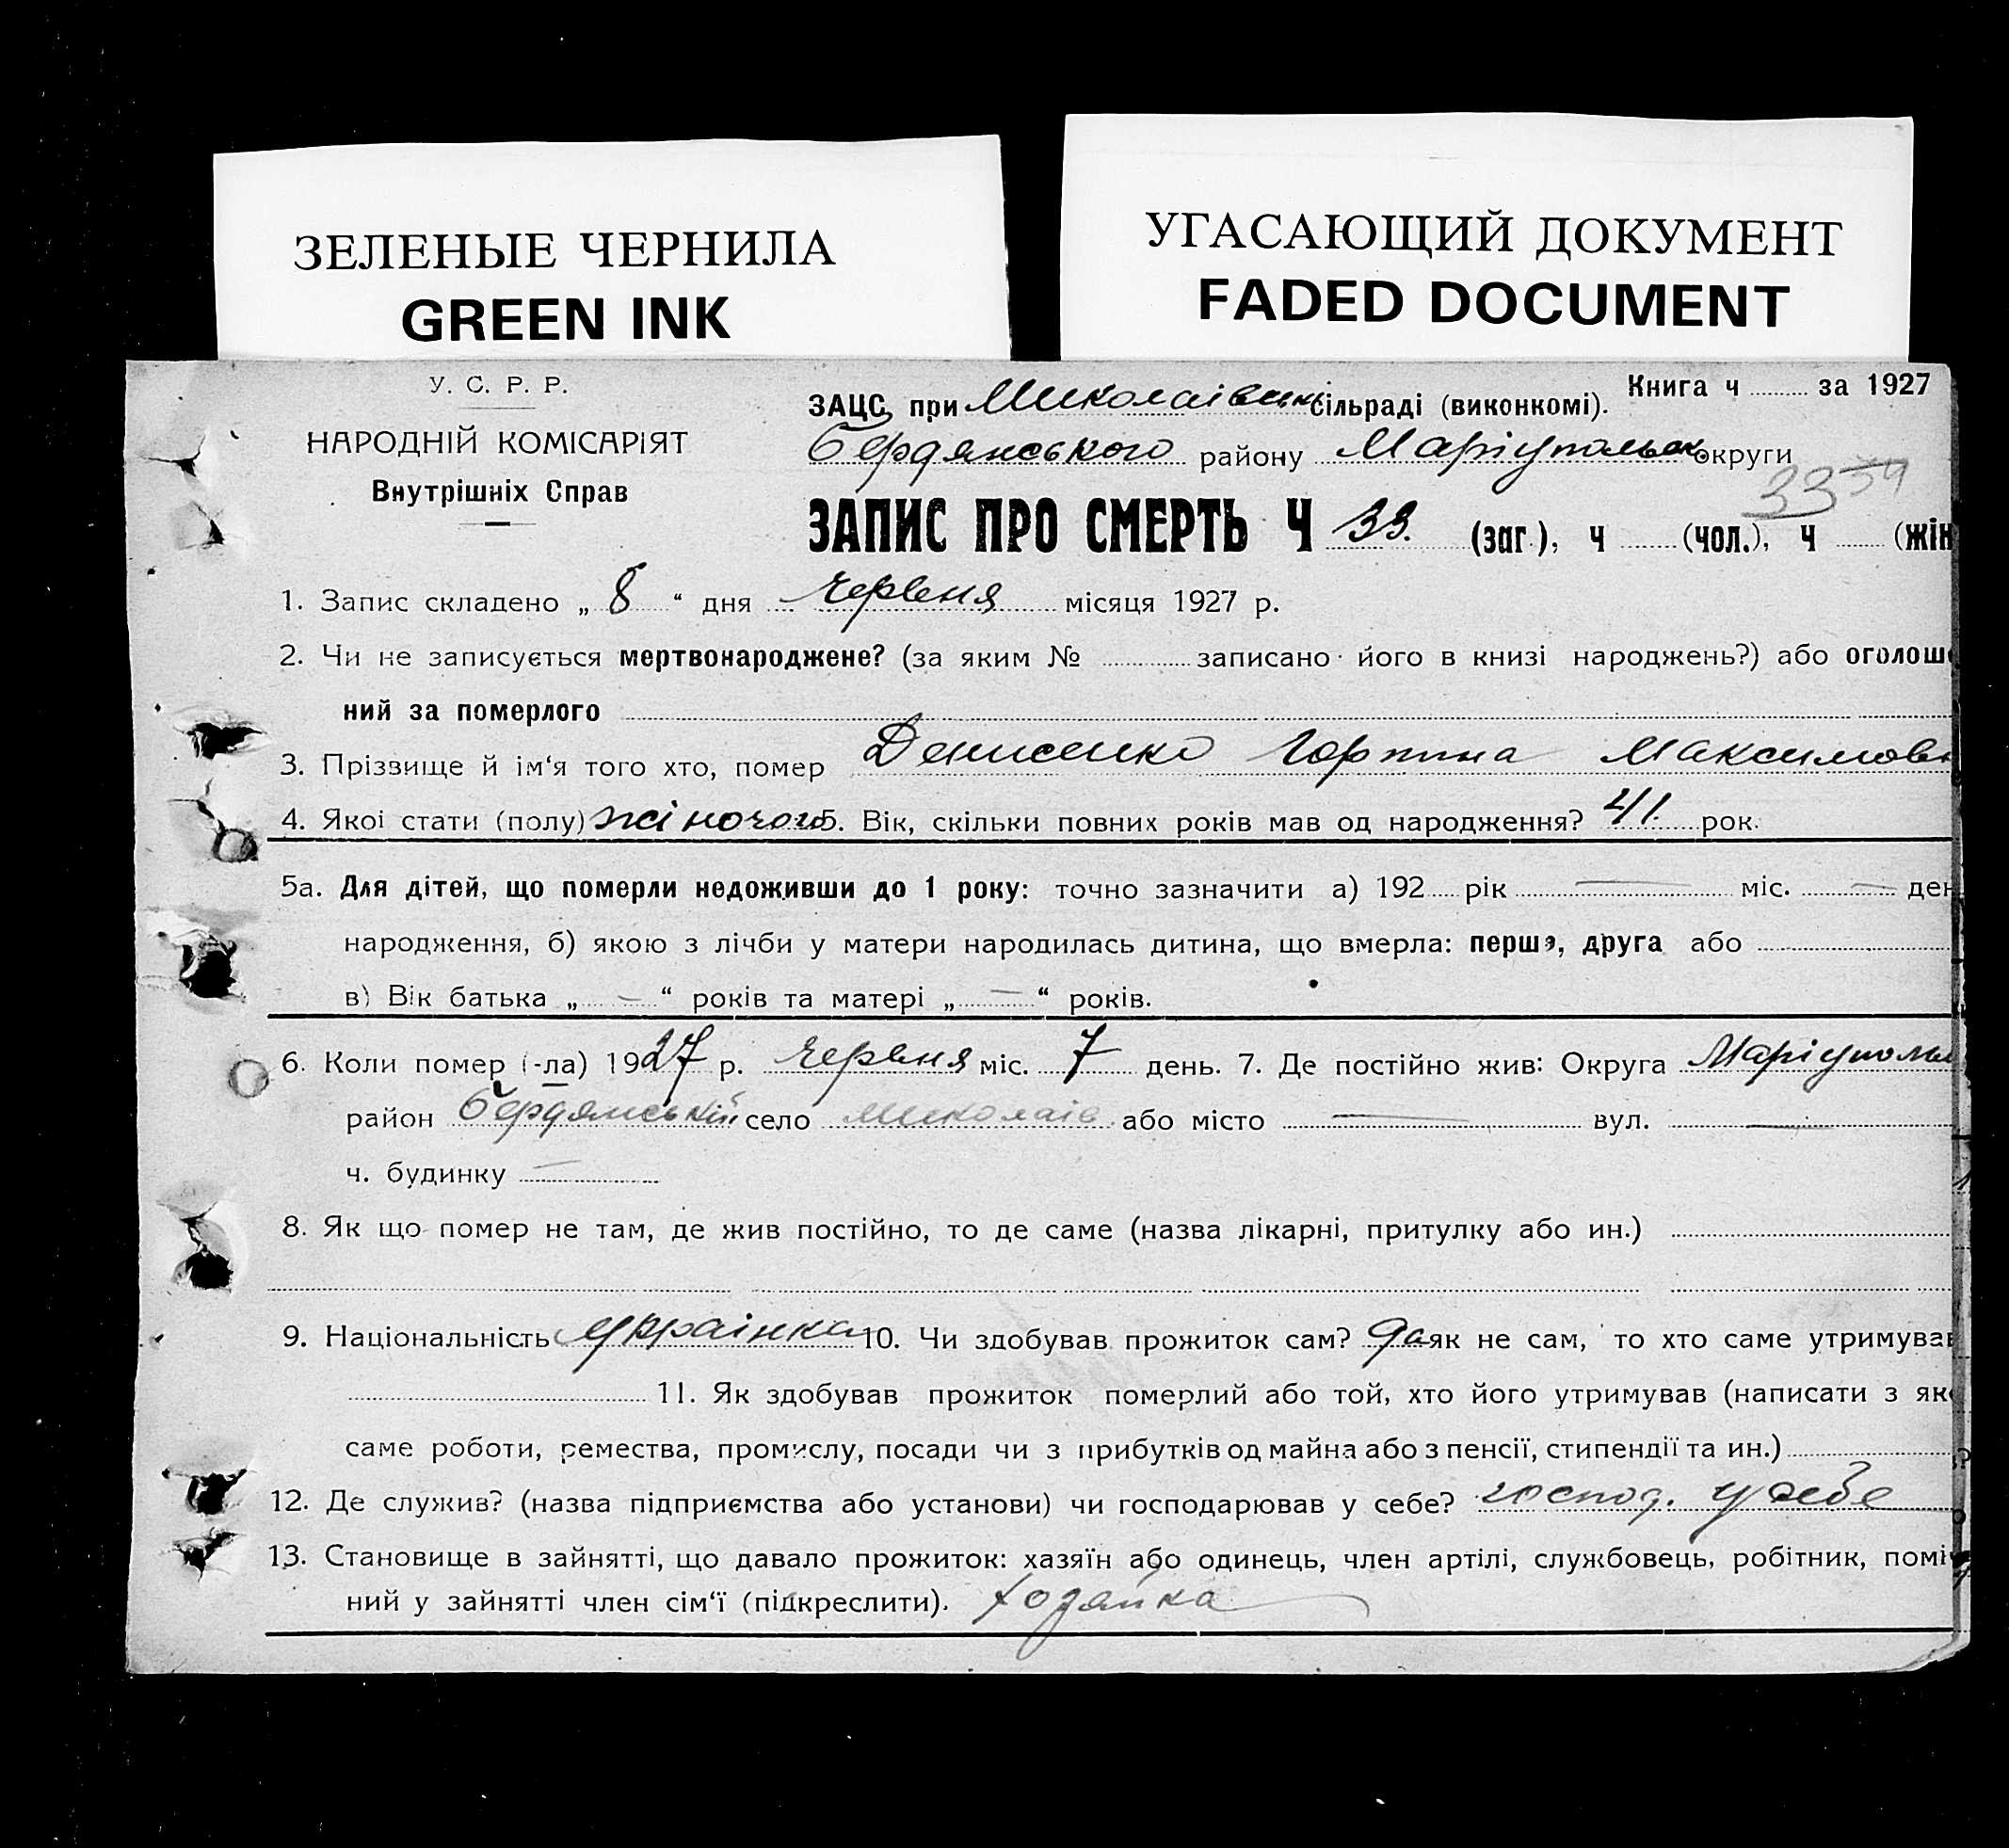 ЗЕЛЕНЫЕ ЧЕРНИЛА
GREEN INK
УГАСАЮЩИЙ ДОКУМЕНТ
FADED DOCUMENT
У. С. Р. Р.
НАРОДНІЙ КОМІСАРІЯТ
Внутрішніх Справ
Книга ч за 1927
ЗАЦС, при Миколаівськ сільраді (виконкомі).
Бердянського району Маріупольск округи
33 59
ЗАПИС ПРО СМЕРТЬ Ч 33. (заг.), ч (чол.), ч (жін
1. Запис складено „ 8 “ дня червня місяця 1927 р.
2. Чи не записується мертвонароджене? (за яким № записано його в книзі народжень?) або оголоше
ний за померлого
3. Прізвище й ім‘я того хто, помер Денисенко Горпина Максимовн
4. Якоі стати (полу) жіночоі 5. Вік, скільки повних років мав од народження? 41. рок.
5а. Для дітей, що померли недоживши до 1 року: точно зазначити а) 192 рік — міс. — ден
народження, б) якою з лічби у матери народилась дитина, що вмерла: перша, друга або
в) Вік батька „ — “ років та матері „ — “ років.
6. Коли помер (-ла) 1927 р. червня міс. 7 день. 7. Де постійно жив: Округа Маріупольс
район Бердянській село Миколаів або місто — вул. —
ч. будинку —
8. Як що помер не там, де жив постійно, то де саме (назва лікарні, притулку або ин.)
9. Національність украінка 10. Чи здобував прожиток сам? да як не сам, то хто саме утримував
11. Як здобував прожиток померлий або той, хто його утримував (написати з яко
саме роботи, ремества, промислу, посади чи з прибутків од майна або з пенсії, стипендії та ин.)
12. Де служив? (назва підприємства або установи) чи господарював у себе? господ. у себе
13. Становище в зайнятті, що давало прожиток: хазяїн або одинець, член артілі, службовець, робітник, поміч
ний у зайнятті член сім‘ї (підкреслити). хозяйка